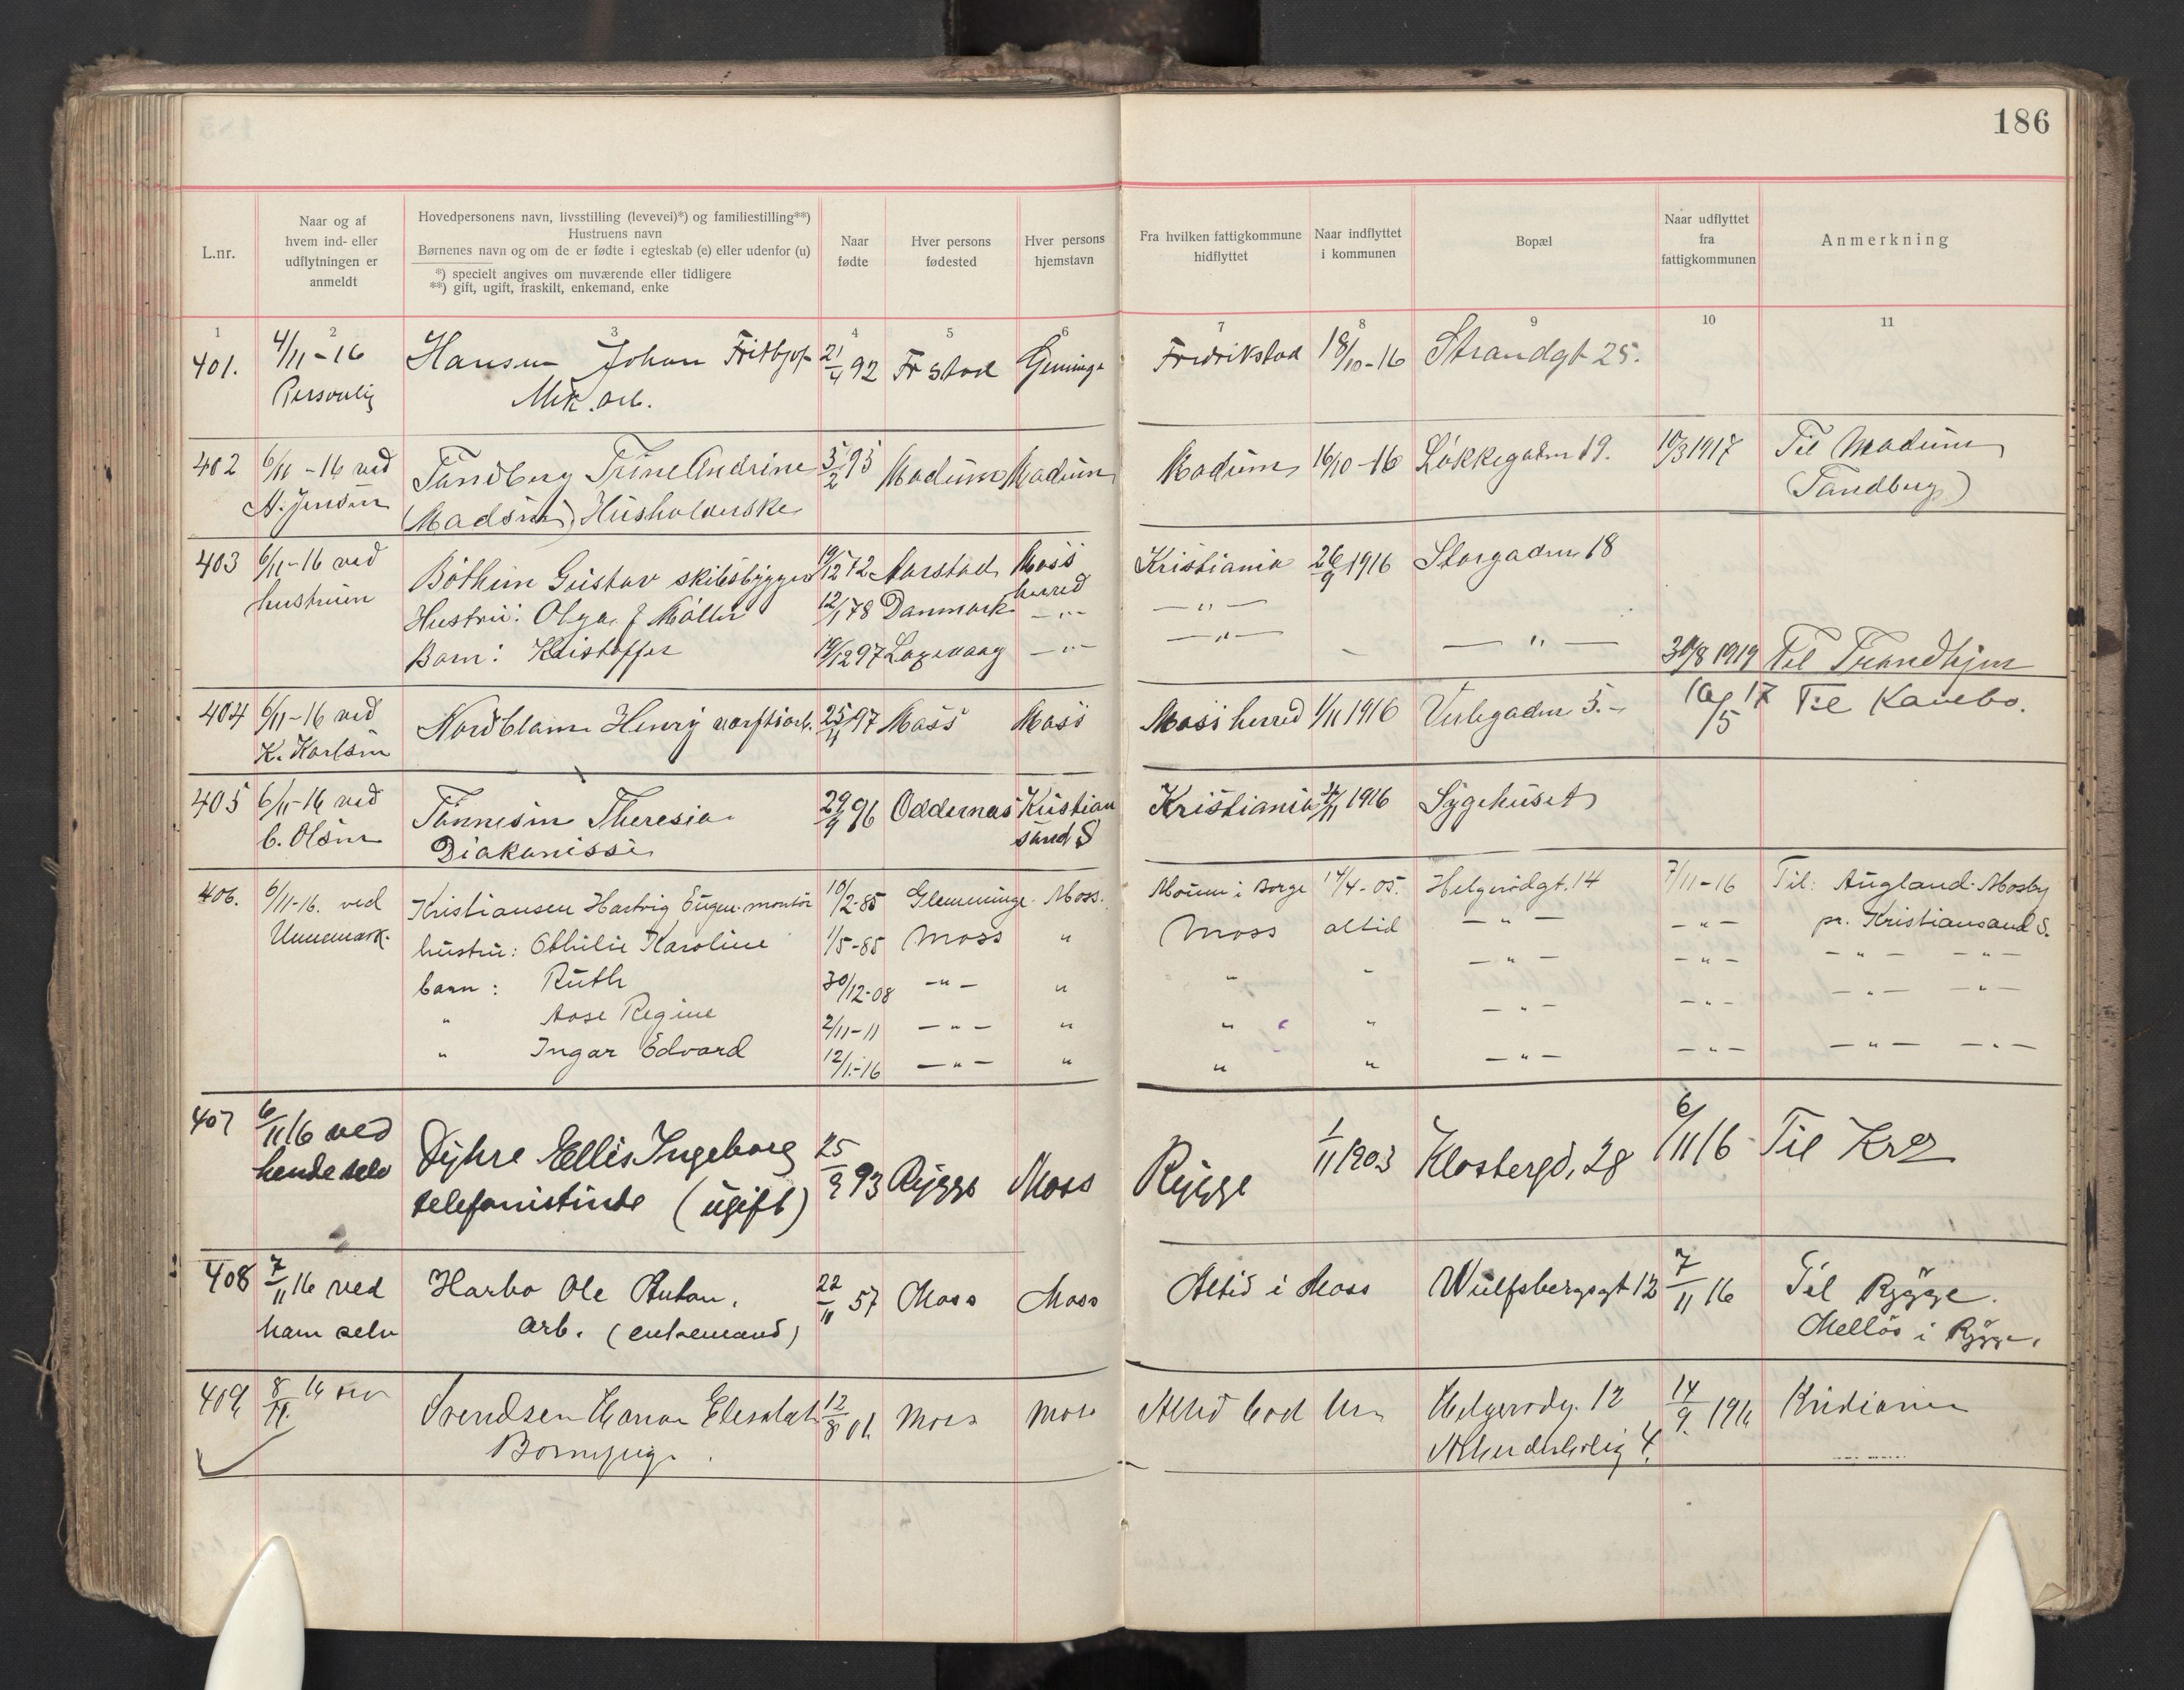 186
L.nr.
Naar og af hvem ind- eller udflytningen er anmeldt
Hovedpersonens navn, livsstilling (levevei)*) og familiestilling**)
Hustruens navn
Børnenes navn og om de er fødte i egteskab (e) eller udenfor (u)
*) specielt angives om nuværende eller tidligere
**) gift, ugift, fraskilt, enkemand, enke
Naar fødte
Hver persons fødested
Hver persons hjemstavn
Fra hvilken fattigkommune hidflyttet
Naar indflyttet i kommunen
Bopæl
Naar udflyttet fra fattigkommunen
Anmerkning
1 2 3 4 5 6 7 8 9 10 11
401. 4/11-16 Hansen Johan Fritbjof 21/4 92 Fr stad Fredrikstad 18/10-16 Strandgt 25.
Personlig Mek. arb.
402 6/11-16 ved Tandberg Trine Andrine 5/2 95 Modum Modum Modum 16/10-16 Løkkegaden 19. 10/3 1917 Til Modum
A. Jensen (Madsen) Husholderske (Tandberg)
403 6/11-16 ved Bothun Gustav skibsbygger 19/12 72 Aarstad Moss herred Kristiania 26/9 1916 Storgaden 18
hustruen Hustru: Olga f Møller 12/1 78 Danmark -"- -"-
Barn: Kristoffer 19/12 97 Laxevaag -"- -"- -"- 30/8 1919 Til Trondhjem
404 6/11-16 ved Nordblom Henry værftsarb. 25/11 97 Moss Moss Moss herred 1/11 1916 Verlegaden 5. 16/5 17 Til Kambo.
K. Karlsen
405 6/11-16 ved Tønnesen Theresia 29/9 96 Oddernes Kristian Kristiania 1916 Sygehuset
C. Olsen Diakonisse sand S
406. 6/11-16. ved Kristiansen Hartvig Eugen montör 10/2-85 Glemminge Moss. Moum i Borge 14/4-05. Helgerödgt. 14 7/11-16 Til: Augland Mosby
Unnemark. hustru: Othilie Karoline 1/5-85 Moss " Moss altid -"- -"- pr. Kristiansand S.
barn: Ruth 30/12-08 -"- " " " -"- -"- -"- -"-
" Aase Regine 2/11-11 -"- " " " -"- -"- -"- -"-
" Ingar Edvard 12/1-16 -"- " " " -"- -"- -"- -"-
407 6/11 16 ved Dyhre Ellis Ingeborg 25/9 93 Rygge Moss Rygge 1/11 1903 Klostergd, 28 6/11 16 Til Kra
hende selv telefonistinde (ugift)
408 7/11 16 ved Harbo Ole Anton. 22/11 57 Moss Moss Altid i Moss Wulfsbergsgt 12 7/11 16 Til Rygge.
ham selv arb. (enkemand) Melløs i Rygge.
409 8/11. 16 Svendsen 12/8 01 Moss Moss Altid Helgerödg. 12 14/9. 1916 Kristiania
4.